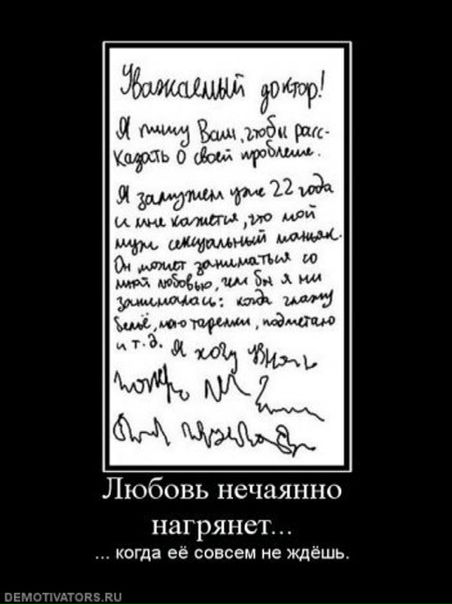 Уважаемый доктор!
Я пишу Вам, чтобы расс-
казать о своей проблеме.
Я замужем уже 22 года
и мне кажется, что мой
муж сексуальный маньяк.
Он может заниматься со
мной любовью, чем бы я ни
занималась: когда глажу
бельё, мою тарелки, подметаю
и т.д. Я хочу знать
Любовь нечаянно
нагрянет...
... когда её совсем не ждёшь.
DEMOTIVATORS.RU